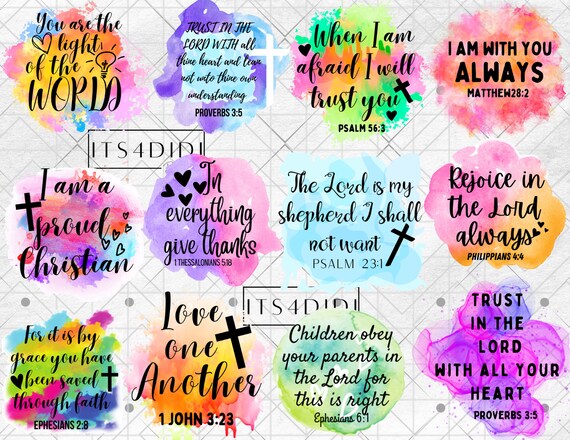 You are the
light
of the
WORLD
TRUST IN THE
LORD WITH all
thine heart and lean
not unto thine own
understanding
PROVERBS 3:5
When I am
afraid I will
trust you
PSALM 56:3
I AM WITH YOU
ALWAYS
MATTHEW28:2
ITS4DIDI
I am a
proud
Christian
In
everything
give thanks
1 THESSALONIANS 5:18
The Lord is my
shepherd I shall
not want
PSALM 23:1
Rejoice in
the Lord
always
PHILIPPIANS 4:4
ITS4DIDI
For it is by
grace you have
been saved
through faith
EPHESIANS 2:8
Love
one
Another
1 JOHN 3:23
Children obey
your parents in
the Lord for
this is right
Ephesians 6:1
TRUST
IN THE
LORD
WITH ALL YOUR
HEART
PROVERBS 3:5